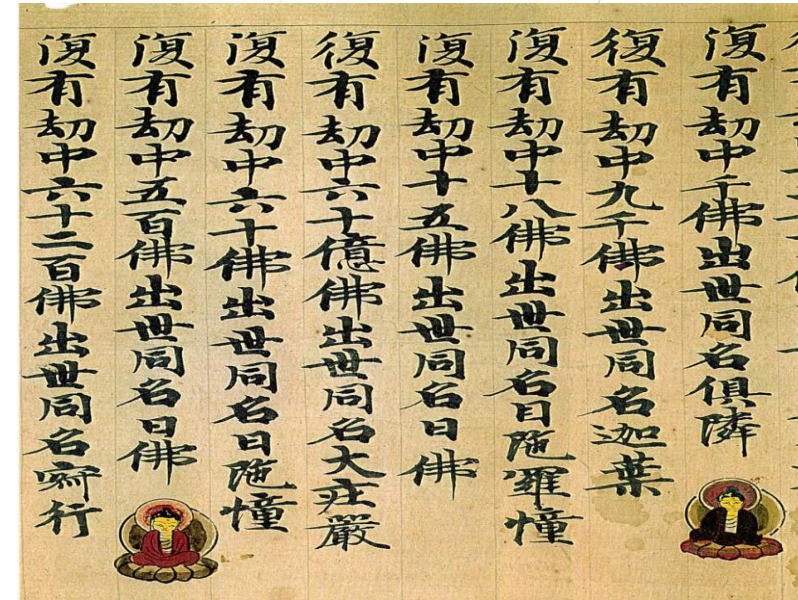 復有劫中千佛出世同名俱隣
復有劫中九千佛出世同名迦葉
復有劫中十八佛出世同名日陁羅憧
復有劫中十五佛出世同名日佛
復有劫中六十億佛出世同名大庄嚴
復有劫中六十佛出世同名日陁憧
復有劫中五百佛出世同名日佛
復有劫中六十二百佛出世同名寂行